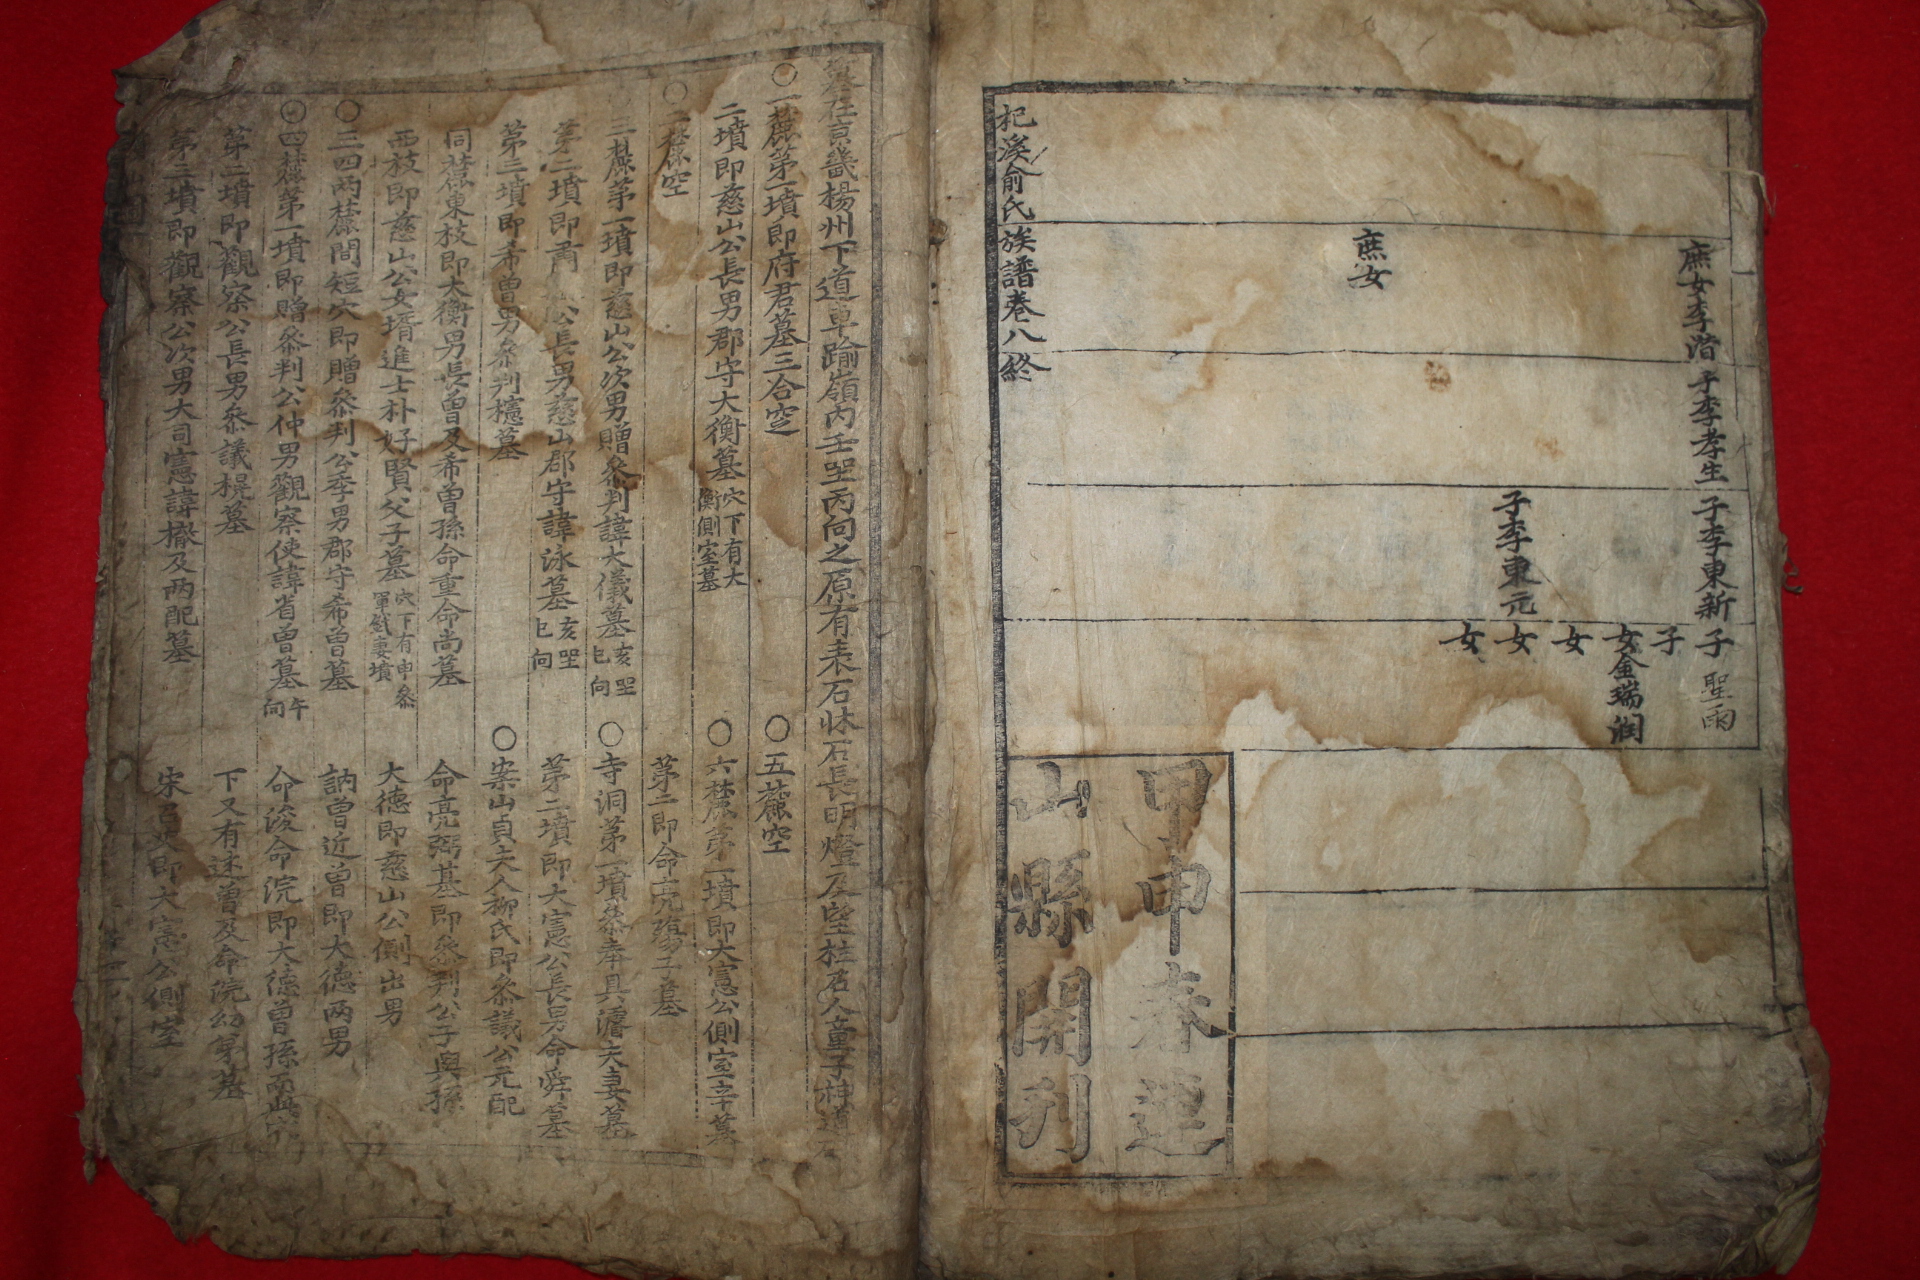 庶女李潽
子李孝生
子李東新
子聖雨
子
女金瑞潤
女
子李東元
女
女
庶女
甲申春連
山縣開刊
杞溪俞氏族譜卷八終
墓在京畿楊州下道車踰嶺內壬坐丙向之原有表石牀石長明燈及望柱石人童子神道
○一麓第一墳即府君墓三合窆
二墳即慈山公長男郡守大衡墓穴下有大衡側室墓
○二麓空
三麓第一墳即慈山公次男贈叅判諱大儀墓亥坐巳向
第二墳即 公長男慈山郡守諱泳墓亥坐巳向
第三墳即希曾男叅判櫶墓
同麓東枝即大衡男長曾及希曾孫命重命尚墓
西枝即慈山公女壻進士朴好賢父子墓穴下有申叅軍 妻墳
○三四兩麓間短穴即贈叅判公季男郡守希曾墓
○四麓第一墳即贈叅判公仲男觀察使諱省曾墓午向
第二墳即觀察公長男叅議榥墓
第三墳即觀察公次男大司憲諱檄及兩配墓
○五麓空
○六麓第一墳即大憲公側室辛墓
第二即命亮殤子墓
○寺洞第一墳叅奉具 夫妻墓
第二墳即大憲公長男命舜墓
○案山貞夫人柳氏即叅議公元配
命亮弼墓即叅判公子與孫
大德即慈山公側出男
訥曾近曾即大德兩男
命浚命浣即大德曾孫而此穴
下又有述曾及命浣幼弟墓
宋召史即大憲公側室